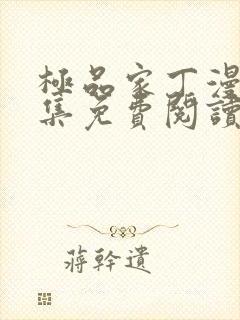 極品家丁漫
集免費閱讀
蔣幹遺